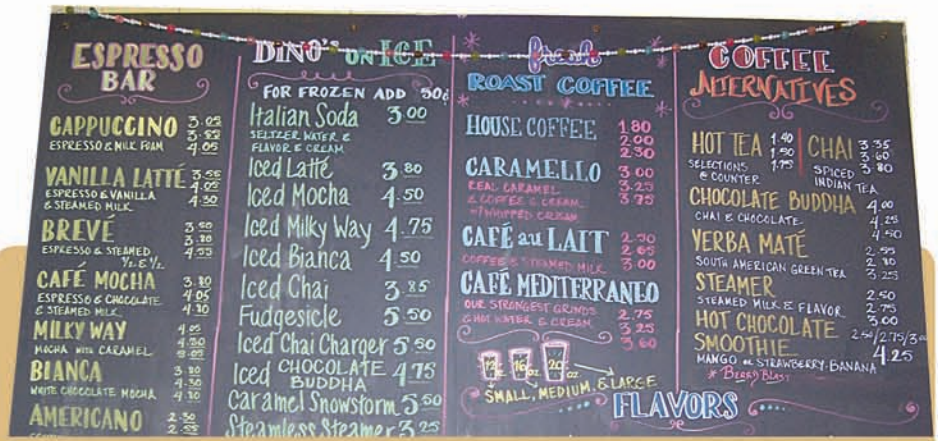 ESPRESSO
BAR
CAPPUCCINO 3.05
3.55
ESPRESSO & MILK FOAM 4.05
VANILLA LATTÉ 3.55
ESPRESSO & VANILLA 4.05
& STEAMED MILK 4.30
BREVÉ 3.50
3.80
ESPRESSO & STEAMED 4.55
½ & ½
CAFÉ MOCHA 3.80
ESPRESSO & CHOCOLATE 4.05
& STEAMED MILK 4.30
MILKY WAY 4.05
4.30
MOCHA WITH CARAMEL
BIANCA 3.80
4.30
WHITE CHOCOLATE MOCHA 4.80
AMERICANO 2.30
2.55
DINO'S ON ICE
FOR FROZEN ADD 50¢
Italian Soda 3.00
SELTZER WATER &
FLAVOR & CREAM
Iced Latté 3.80
Iced Mocha 4.50
Iced Milky Way 4.75
Iced Bianca 4.50
Iced Chai 3.85
Fudgesicle 5.50
Iced Chai Charger 5.50
Iced CHOCOLATE 4.75
BUDDHA
Caramel Snowstorm 5.50
Steamless Steamer 3.25
fresh
ROAST COFFEE
HOUSE COFFEE 1.80
2.00
2.30
CARAMELLO 3.00
REAL CARAMEL 3.25
& COFFEE & CREAM 3.75
WHIPPED CREAM
CAFÉ au LAIT 2.30
2.65
COFFEE & STEAMED MILK 3.00
CAFÉ MEDITERRANEO
OUR STRONGEST GRINDS 2.75
& HOT WATER & CREAM 3.25
3.60
12 16 oz. 20 oz.
SMALL, MEDIUM, & LARGE
FLAVORS
COFFEE
ALTERNATIVES
HOT TEA 1.40
1.50
SELECTIONS 1.75
@ COUNTER
CHAI 3.35
3.60
SPICED 3.80
INDIAN TEA
CHOCOLATE BUDDHA 4.00
CHAI & CHOCOLATE 4.25
4.50
YERBA MATÉ 2.55
2.80
SOUTH AMERICAN GREEN TEA 3.25
STEAMER 2.50
STEAMED MILK & FLAVOR 2.75
3.00
HOT CHOCOLATE 2.50/2.75/3.00
SMOOTHIE 4.25
MANGO or STRAWBERRY-BANANA
* BERRY BLAST